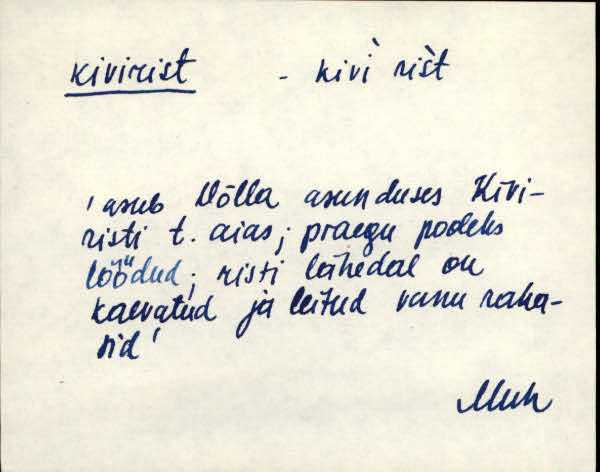 kivirist - kivì rìst
'asub Võlla asunduses Kivi-
risti t. aias; praegu pooleks
löödud; risti lähedal on
kaevatud ja leitud vanu raha-
sid'
Muh